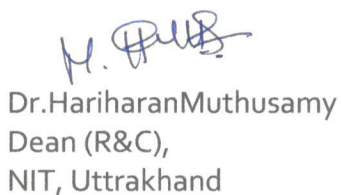 Dr.HariharanMuthusamy
Dean (R&C),
NIT, Uttrakhand